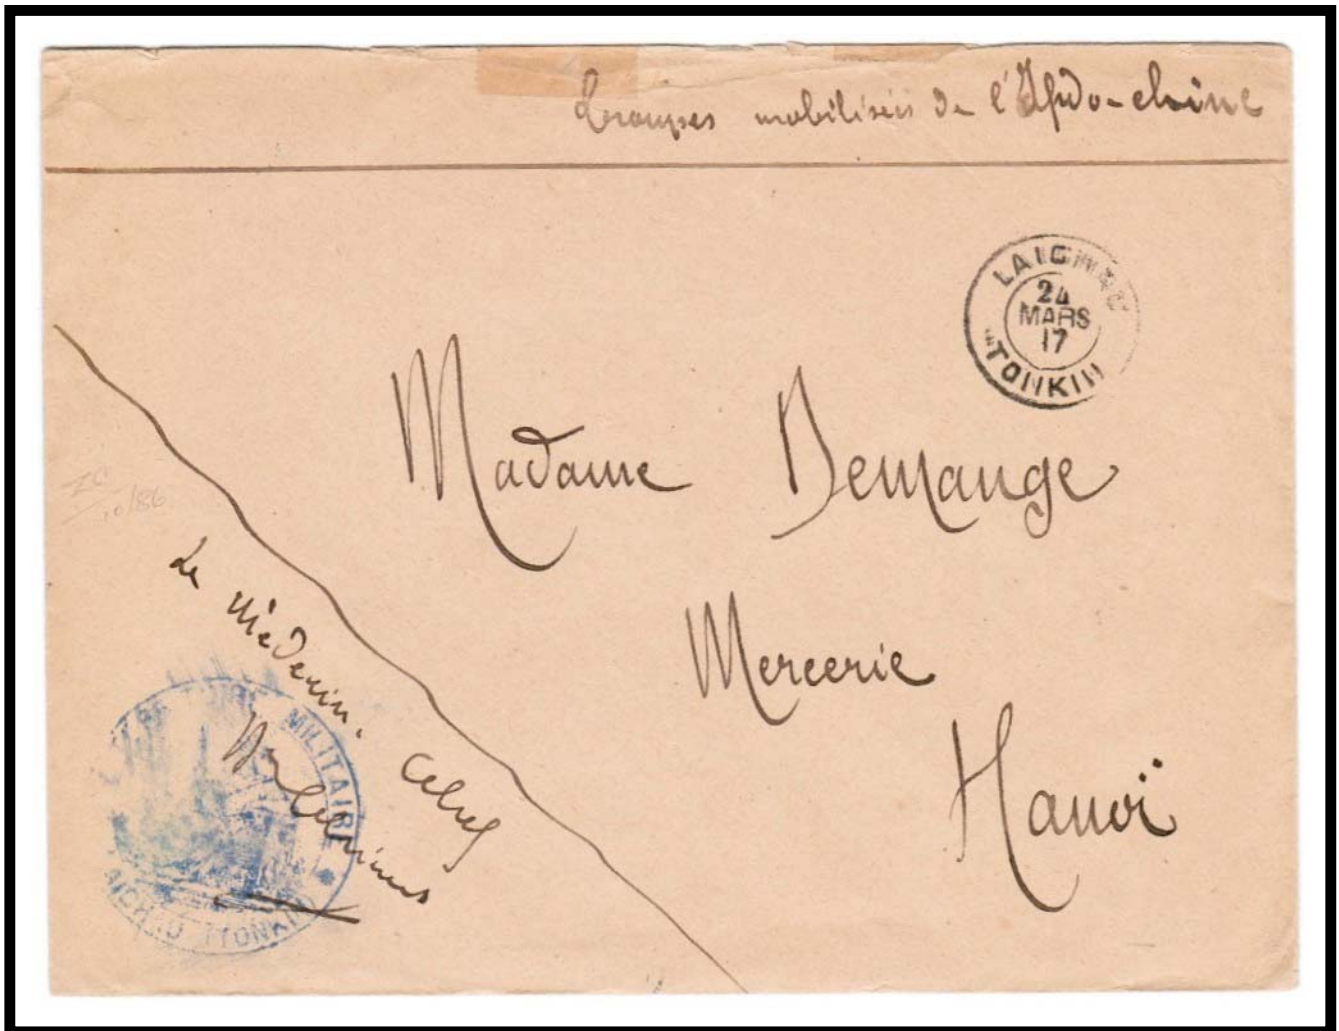 Troupes mobilisées de l'Indo-chine
LAICHAU
24
MARS
17
TONKIN
Madame Demange
Mercerie
Hanoï
Le Médecin. Chef
MILITAIRE *
TONKIN
10/86